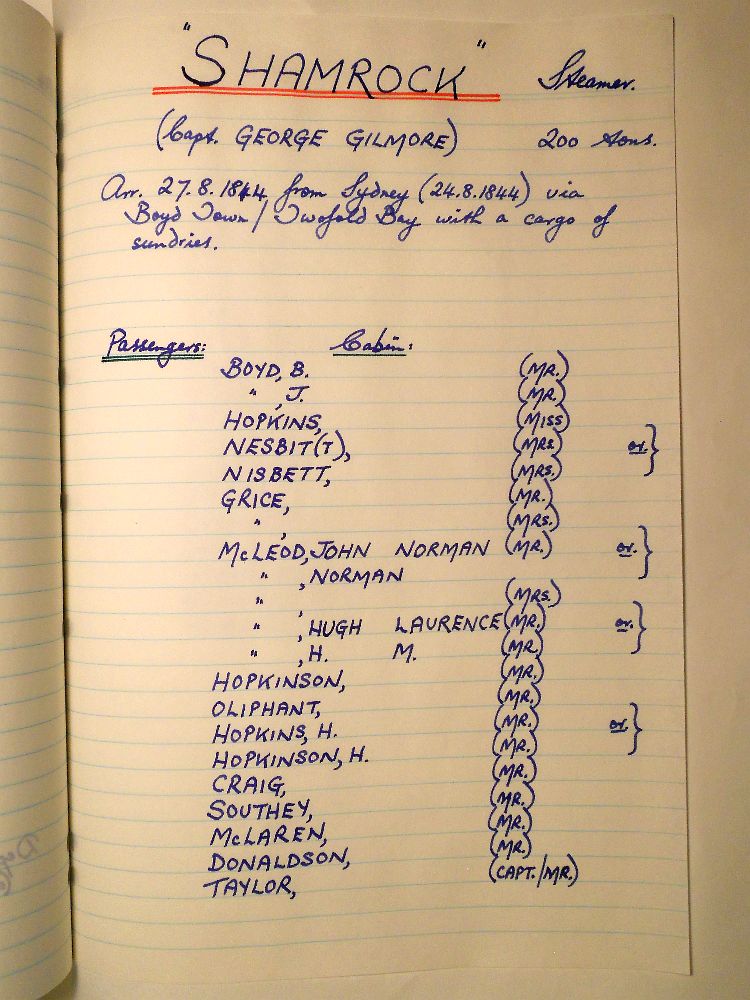 "SHAMROCK" Steamer.
(Capt. GEORGE GILMORE) 200 tons.
Arr. 27.8.1844 from Sydney (24.8.1844) via
Boyd Town / Twofold Bay with a cargo of
sundries.
Passengers: Cabin:
BOYD, B. (MR.)
" , J. (MR.)
HOPKINS, (MISS)
NESBIT(T), (MRS) or. }
NISBETT, (MRS.)
GRICE, (MR.)
" , (MRS.)
McLEOD, JOHN NORMAN (MR.) or. }
" , NORMAN
" , (MRS.)
" , HUGH LAURENCE (MR.) or. }
" , H. M. (MR.)
HOPKINSON, (MR.)
OLIPHANT, (MR.)
HOPKINS, H. (MR.) or. }
HOPKINSON, H. (MR.)
CRAIG, (MR.)
SOUTHEY, (MR.)
McLAREN, (MR.)
DONALDSON, (MR.)
TAYLOR, (CAPT./MR.)